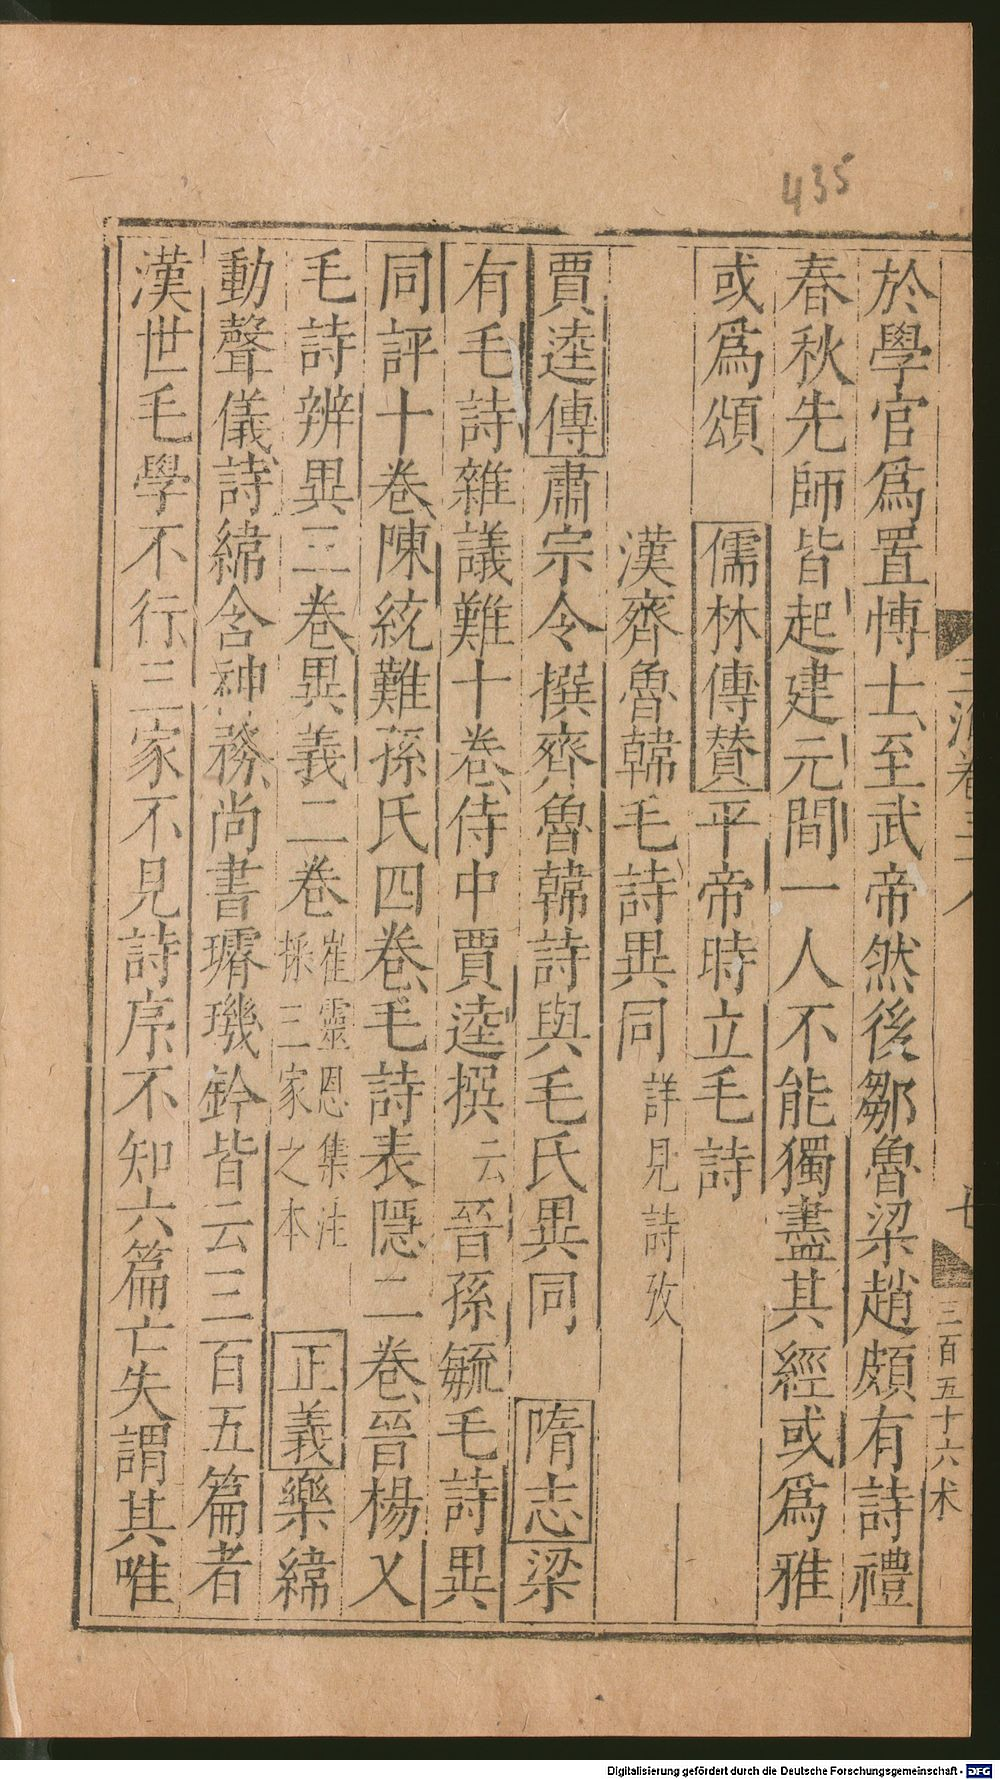 435
於學官爲置愽士至武帝然後鄒魯梁趙頗有詩禮
春秋先師皆起建元間一人不能獨盡其經或爲雅
或爲頌 儒林傳贊平帝時立毛詩
漢齊魯韓毛詩異同 詳見詩攷
賈逵傳肅宗令撰齊魯韓詩與毛氏異同 隋志梁
有毛詩雜議難十卷侍中賈逵撰云晉孫毓毛詩異
同評十卷陳統難孫氏四卷毛詩表隱二卷晉楊乂
毛詩辨異三卷異義二卷 崔靈恩集注
採三家之本
正義樂緯
動聲儀詩緯含神務尚書璿璣鈐皆云三百五篇者
漢世毛學不行三家不見詩序不知六篇亡失謂其唯
七
三百五十六
Digitalisierung gefördert durch die Deutsche Forschungsgemeinschaft - DFG